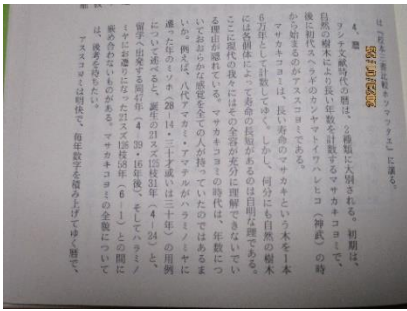 は『校本三書比較ホツマツタヱ』に譲る。
4. 暦
ヲシテ文献時代の暦は、2種類に大別される。初期は、
自然の樹木により長い年数を計数するマサカキコヨミで、
後に初代スヘラギのカンヤマトイワハレヒコ(神武)の時
から始まるのがアススコヨミである。
マサカキコヨミは、長い寿命のマサカキという木を1本
6万年として計数してゆく。しかし、何分にも自然の樹木
には各個体によって寿命の長短があるのは自明な理である。
ここに現代の我々にはその全容が充分に理解できないでい
る理由が隠れている。マサカキコヨミの時代は、年数につ
いておおらかな感覚を全ての人が持っていたのではあるま
いか。例えば、八代アマカミ・アマテルがハラミノミヤに
遷った年のミソホ(28―14・三十才或いは三十年)の用例
について述べると、誕生の21スズ125枝31年(4―24)と、
留学へ出発する周石年(4―39・16年後、そしてハラミノ
ミヤにお遷りになった21スズ126枝58年(6―1)との間に
嵌め合わないものがある。マサカキコヨミの全貌について
は、後考を待ちたい。
アススコヨミは明快で、毎年数字を積み上げてゆく暦で、